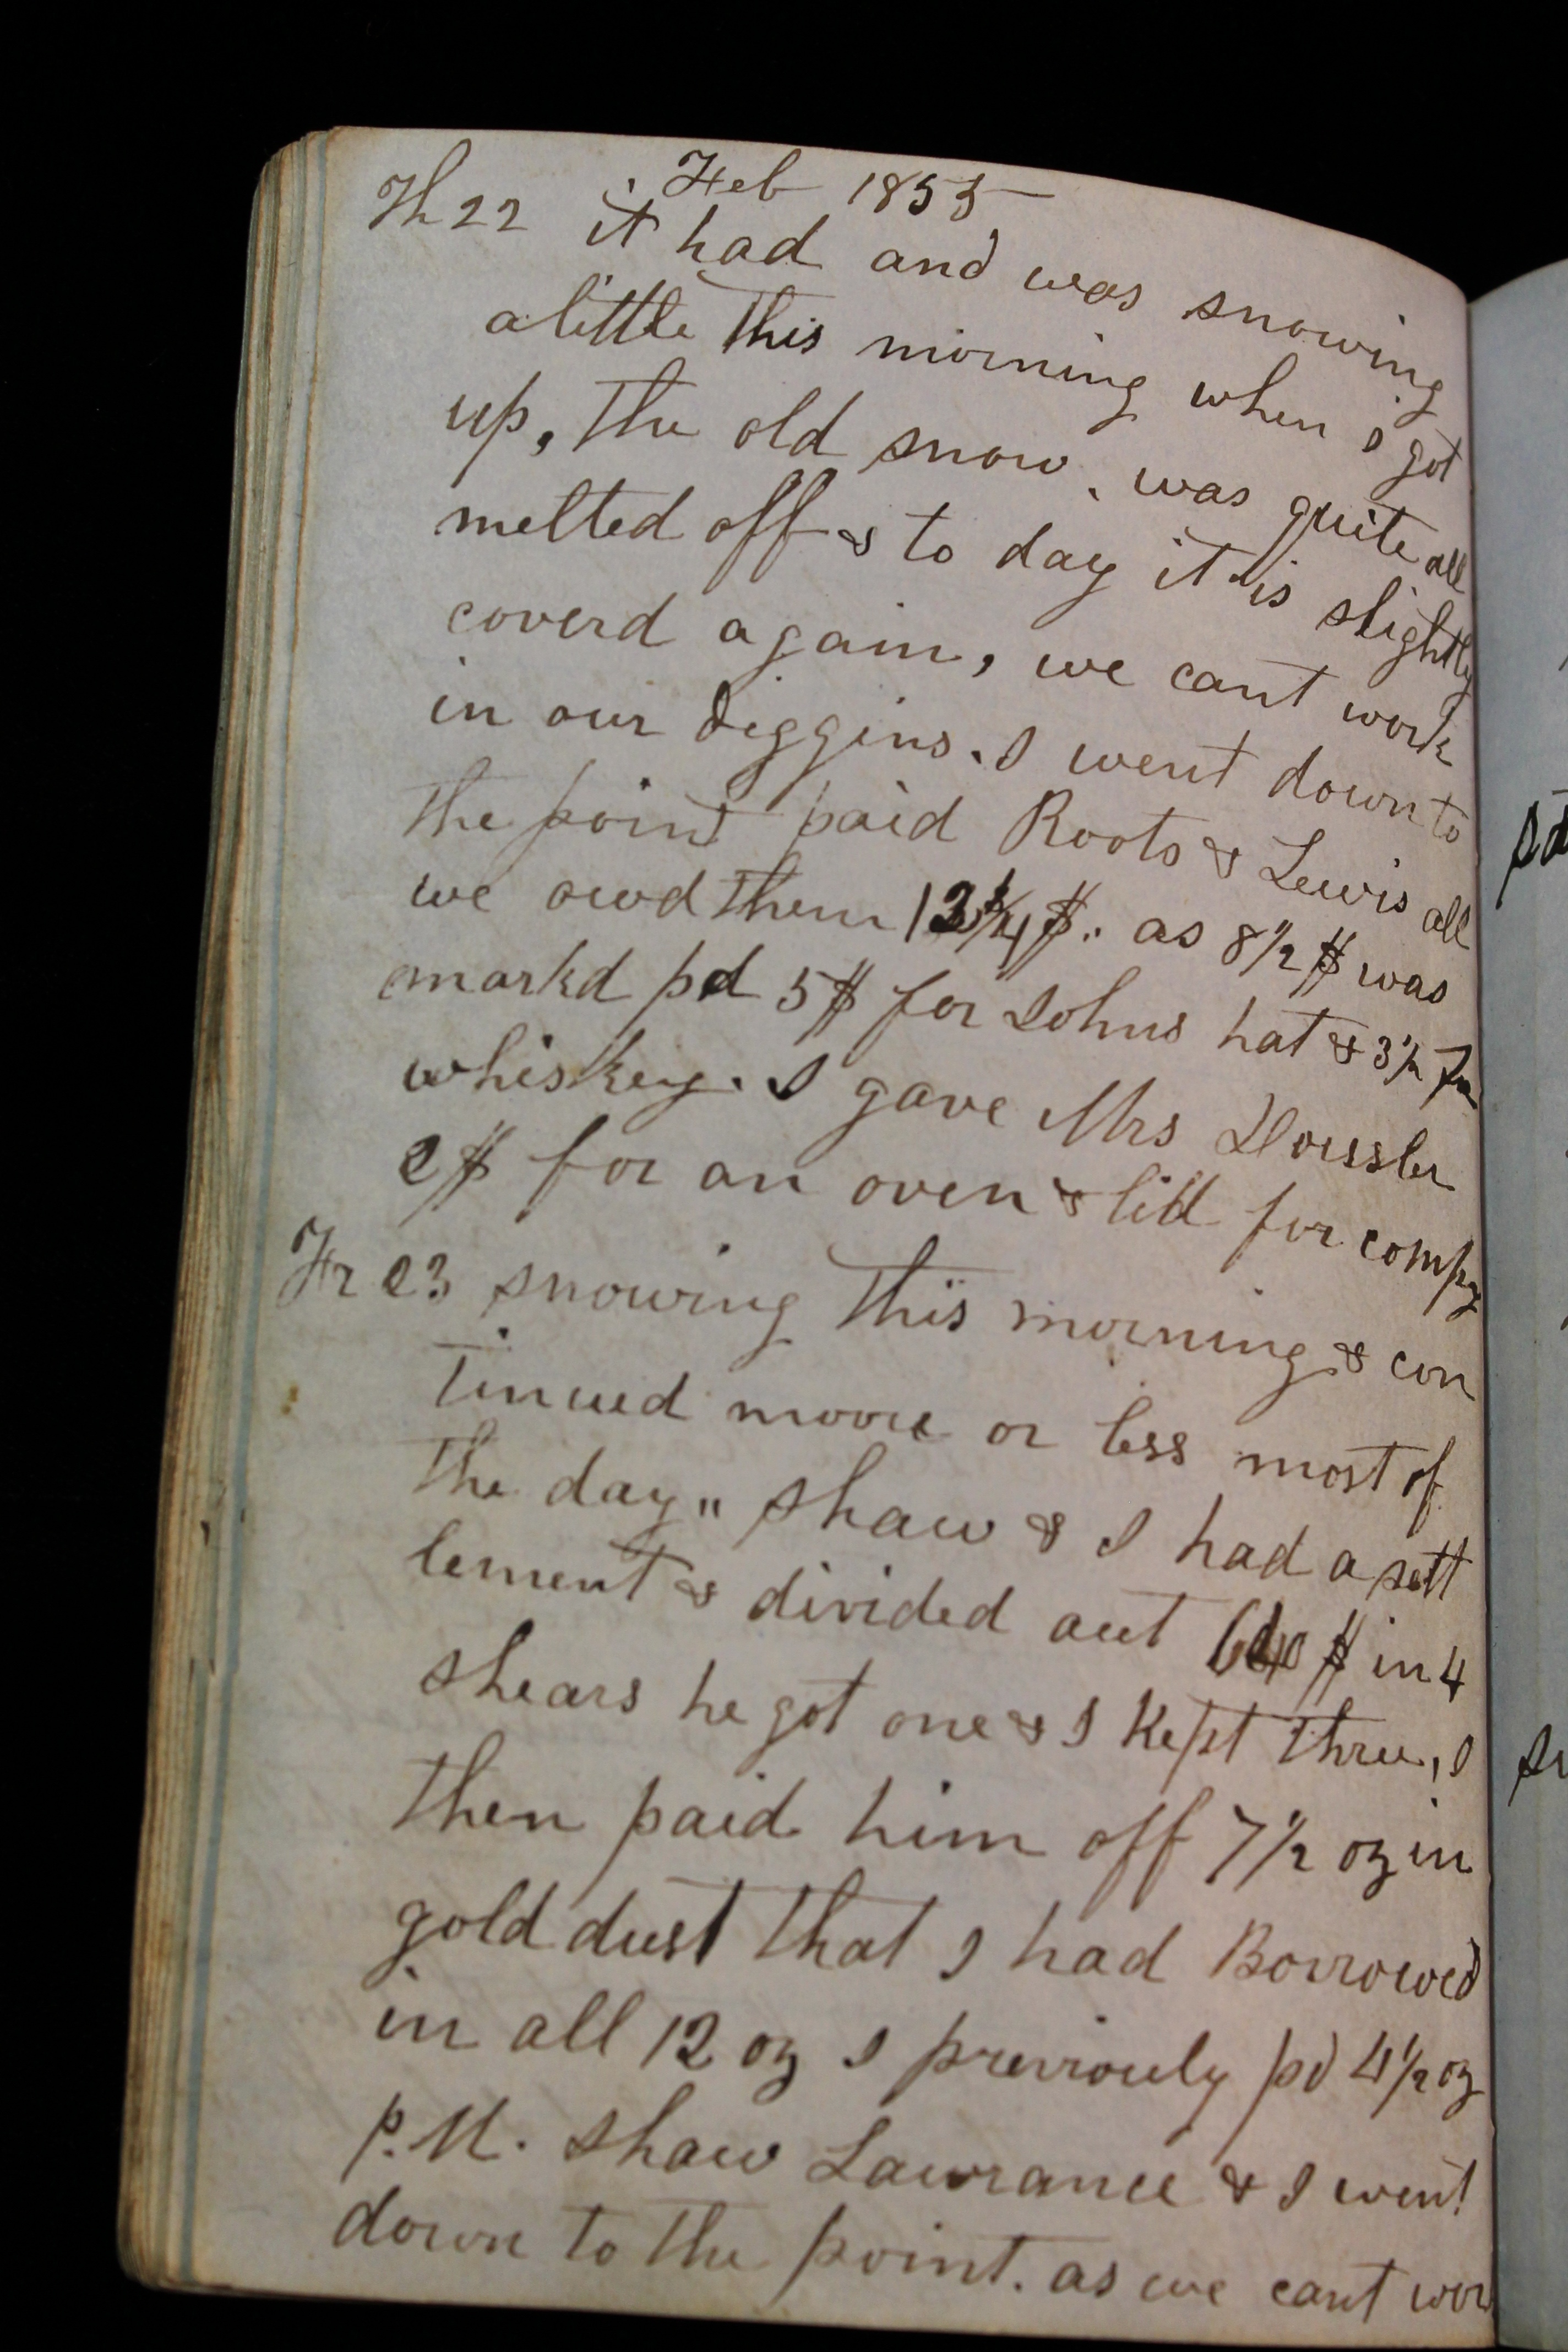 Feb 1855
Th 22 it had and was snowing
a little this morning when I got
up, the old snow, was quite all
melted off & to day it is slightly
coverd again, we cant work
in our diggins. I went down to
the point paid Roots & Lewis all
we owd them $. as 8 1/2 $ was
markd pd 5 $ for Johns hat & 3 1/2 for
whiskey. I gave Mrs
2 $ for an oven & lid for compy
Fr 23 snowing this morning & con
tinued moore or less most of
the day " Shaw & I had a sett
lement & divided out $ in 4
shears he got one & I kept three, I
then paid him off 7 1/2 oz in
gold dust that I had Borrowed
in all 12 oz I previouly pd 4 1/2 oz
P.M. Shaw Lawrance & I went
down to the point. as we cant wor